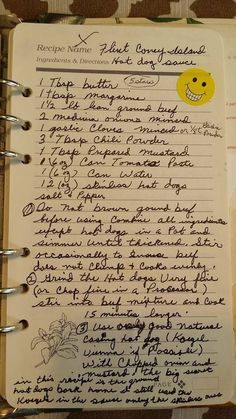 Recipe Name Flint Coney Island
Ingredients & Directions Hot dog sauce
5 stars
1 Tbsp butter
1 Tbsp margarine
1 1/2 lb lean ground beef
2 medium onions minced
1 garlic cloves minced or
3 Tbsp Chili Powder
1 Tbsp Prepared Mustard
1 (6 oz) Can Tomato Paste
1 (6 oz) Can Water
12 (oz) skinless hot dogs
salt + Pepper
① Do Not brown ground beef
before using Combine all ingredients
except hot dogs in a Pot and
simmer Until thickened. Stir
occasionally to insure beef
does not Clump + Cooks evenly.
2 Grind the Hot dogs Very fine
(or Chop fine in a Processor)
stir into beef mixture and Cook
15 minutes longer.
③ Use only Good Natural
Casing hot dog (Koegel
Vienna if Possible)
With Chopped onion and
mustard / The big secret
in this recipe is the ground
hot dogs back home I still used
Koegels in the sauce only the skinless ones